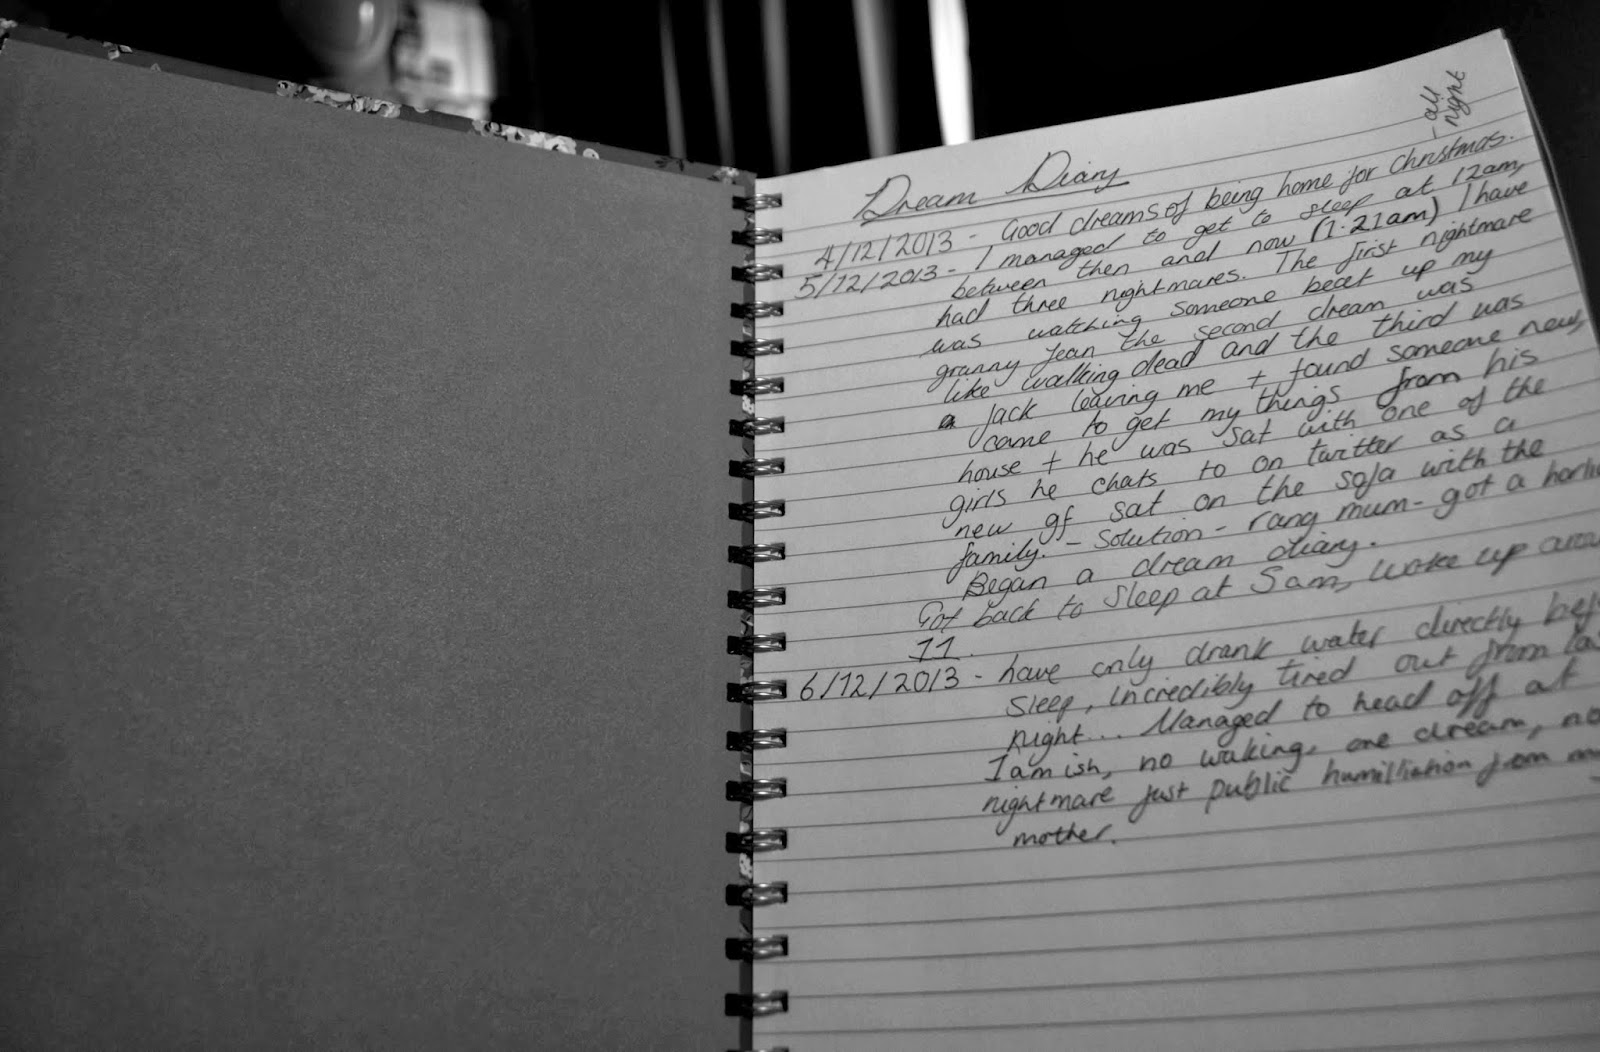 Dream Diary
4/12/2013 - Good dreams of being home for Christmas. - all night
5/12/2013 - I managed to get to sleep at 12am,
between then and now (1:21am) I have
had three nightmares. The first nightmare
was watching someone beat up my
granny Jean the second dream was
like walking dead and the third was
Jack leaving me + found someone new,
came to get my things from his
house + he was sat with one of the
girls he chats to on twitter as a
new gf sat on the sofa with the
family. - Solution - rang mum - got a
Began a dream diary.
Got back to sleep at 5am, woke up
11.
6/12/2013 - have only drank water directly
sleep, incredibly tired out from
night... Managed to head off at
1am ish, no waking, one dream,
nightmare just public humilliation from
mother.